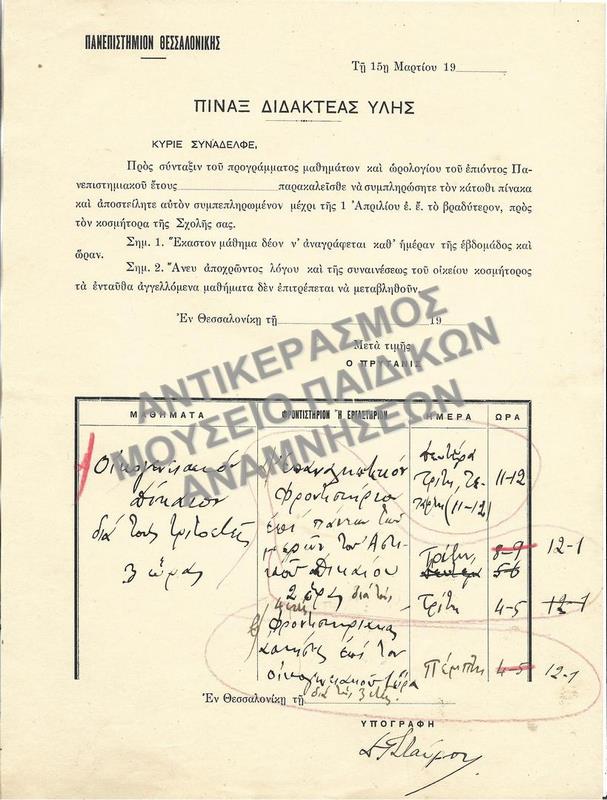 ΠΑΝΕΠΙΣΤΗΜΙΟΝ ΘΕΣΣΑΛΟΝΙΚΗΣ
Τῇ 15ῃ Μαρτίου 19
ΠΙΝΑΞ ΔΙΔΑΚΤΕΑΣ ΥΛΗΣ
ΚΥΡΙΕ ΣΥΝΑΔΕΛΦΕ,
Πρὸς σύνταξιν τοῦ προγράμματος μαθημάτων καὶ ὡρολογίου τοῦ ἐπιόντος Πα-
νεπιστημιακοῦ ἔτους παρακαλεῖσθε νὰ συμπληρώσητε τὸν κάτωθι πίνακα
καὶ ἀποστείλητε αὐτὸν συμπεπληρωμένον μέχρι τῆς 1 Ἀπριλίου ἐ. ἔ. τὸ βραδύτερον, πρὸς
τὸν κοσμήτορα τῆς Σχολῆς σας.
Σημ. 1. Ἕκαστον μάθημα δέον ν' ἀναγράφεται καθ' ἡμέραν τῆς ἑβδομάδος καὶ
ὥραν.
Σημ. 2. Ἄνευ ἀποχρῶντος λόγου καὶ τῆς συναινέσεως τοῦ οἰκείου κοσμήτορος
τὰ ἐνταῦθα ἀγγελλόμενα μαθήματα δὲν ἐπιτρέπεται νὰ μεταβληθοῦν.
Ἐν Θεσσαλονίκῃ τῇ 19
Μετὰ τιμῆς
Ο ΠΡΥΤΑΝΙΣ
ΑΝΤΙΚΕΡΑΣΜΟΣ
ΜΟΥΣΕΙΟ ΠΑΙΔΙΚΩΝ
ΑΝΑΜΝΗΣΕΩΝ
ΜΑΘΗΜΑΤΑ ΦΡΟΝΤΙΣΤΗΡΙΟΝ Ἢ ΕΡΓΑΣΤΗΡΙΟΝ ΗΜΕΡΑ ΩΡΑ
Οἰκογενειακὸν
Δίκαιον
διὰ τοὺς τριτοετεῖς
3 ὥρας
Ἐπαναληπτικὸν
Φροντιστήριον
ἐπὶ πάντων τῶν
μερῶν τοῦ Ἀστι-
κοῦ Δικαίου
2 ὥρας διὰ τοὺς
Δευτέρα
Τρίτη, Τε-
τάρτη (11-12) 11-12
Τρίτη 8-9 12-1
Δευτέρα 5-6
Τρίτη 4-5 12-1
β) Φροντιστηριακὰς
ἀσκήσεις ἐπὶ τοῦ
οἰκογενειακοῦ 1 ὥρα
διὰ τοὺς 3ετεῖς
Πέμπτη 4-5 12-1
Ἐν Θεσσαλονίκῃ τῇ
ΥΠΟΓΡΑΦΗ